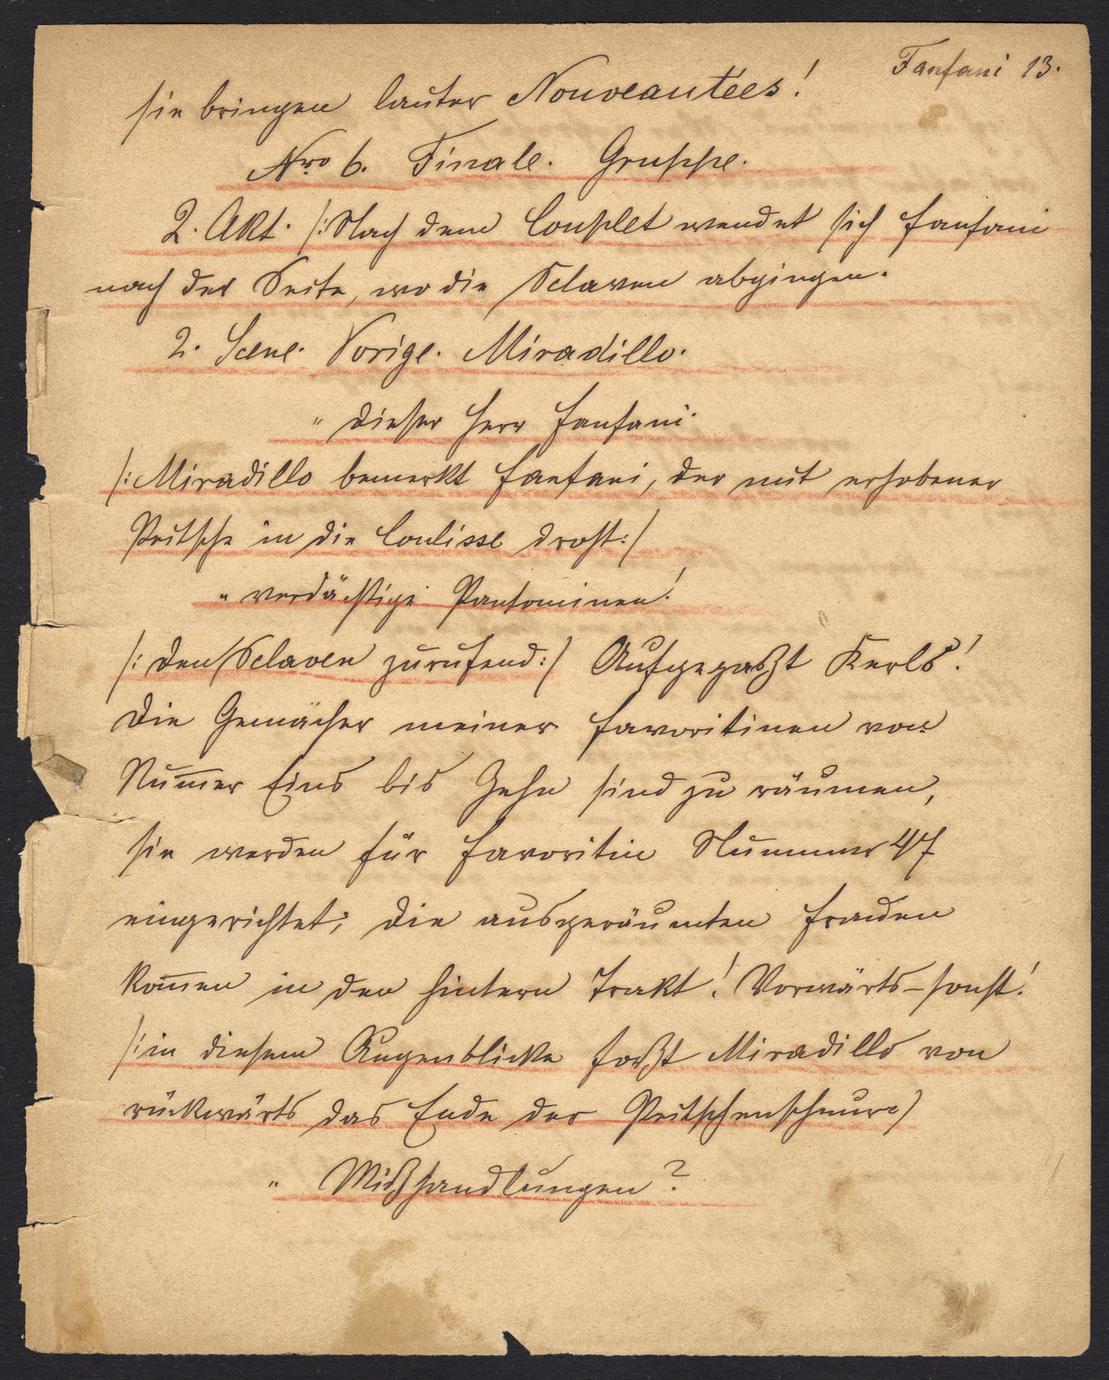 Fanfani 13.
sie bringen lauter Nouveautées!
Nro 6. Finale. Gruppe.
2. Akt. /: Nach dem Couplet wendet sich Fanfani
nach der Seite, wo die Sclaven abgingen.
2. Scene. Vorige. Miradillo.
" dieser Herr Fanfani.
/: Miradillo bemerkt Fanfani, der mit erhobener
Peitsche in die Coulisse droht :/
" verdächtige Pantominen!
/: den Sclaven zurufend :/ Aufgepaßt Kerls!
Die Gemächer meiner Favoritinen von
Num̅er Eins bis Zehn sind zu räumen,
sie werden für Favoritin Nummer 47
eingerichtet; die ausgeräumten Frauen
kom̅en in den hintern Trakt! Vorwärts – sonst!
/: in diesem Augenblicke faßt Miradillo von
rückwärts das Ende der Peitschenschnur :/
" Mißhandlungen?